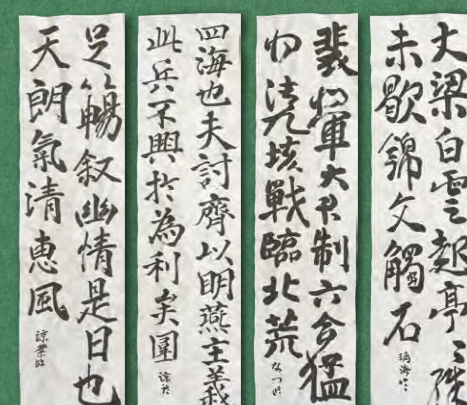 大梁白雲起亭〻殊
未歇錦文觸石
裴将軍大君制六合猛
将清九垓戰臨北荒
四海也夫討齊以明燕主義
此兵不興於為利矣圍
足暢叙幽情是日也
天朗氣清惠風